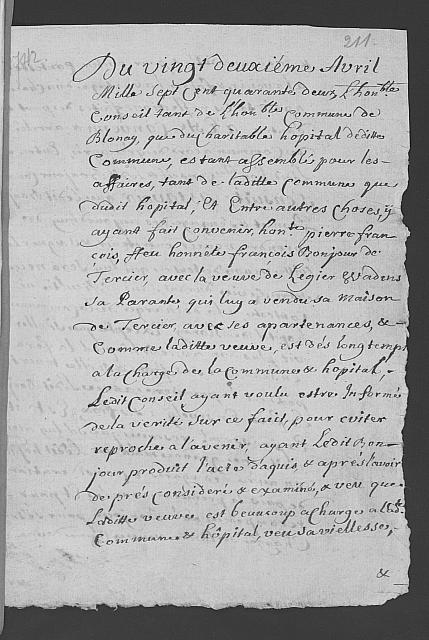 1742
211.
Du vingt deuxiéme Avril
Mille sept cent quarante deux, L'honble
Conseil tant de L'honble Commune de
Blonay, que du charitable hôpital deditte
Commune, estant assemblé pour les
affaires, tant de laditte Commune que
dudit hôpital, Et Entre autres choses, y
ayant fait convenir, honte pierre fran
çois, ffeu honnéte francois Bonjour de
Tercier, avec la veuve de Legier
sa Parante, qui luy a vendu sa maison
de Tercier, avec ses apartenances, &
Comme laditte veuve, est dés longtemps
a la charge de la Commune & hôpital,
Ledit Conseil ayant voulu estre Informé
de la verité sur ce fait, pour eviter
reproche a l'avenir, ayant Ledit Bon-
jour produit l'acte d'aquis & aprés l'avoir
de prés consideré & examiné, & veu que
Laditte veuve est beaucoup a charge a
Commune & hôpital, veu sa viellesse,
&